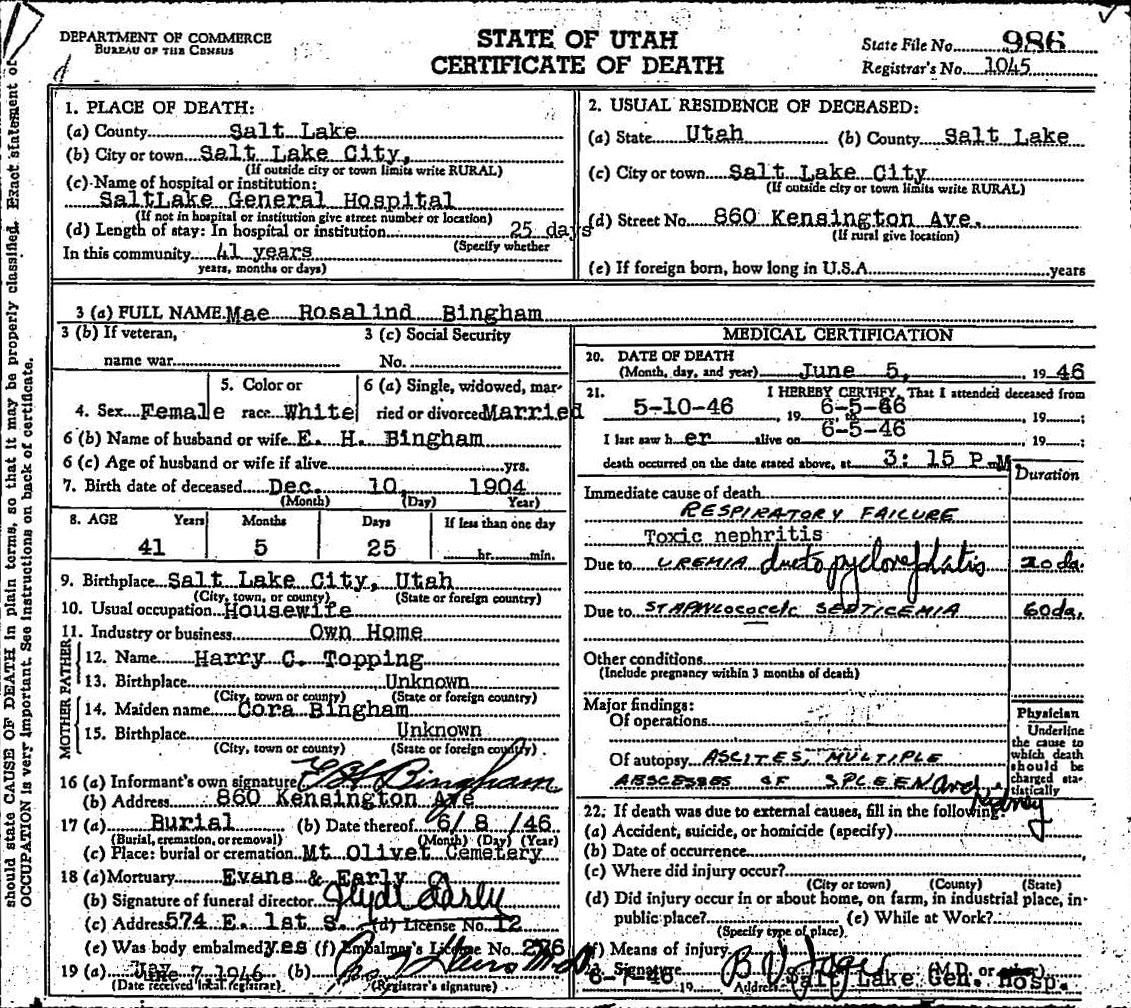 DEPARTMENT OF COMMERCE
BUREAU OF THE CENSUS
STATE OF UTAH
CERTIFICATE OF DEATH
State File No. 986
Registrar's No. 1045
should state CAUSE OF DEATH in plain terms, so that it may be properly classified. Exact statement of
OCCUPATION is very important. See instructions on back of certificate.
1. PLACE OF DEATH:
(a) County Salt Lake
(b) City or town Salt Lake City,
(If outside city or town limits write RURAL)
(c) Name of hospital or institution:
SaltLake General Hospital
(If not in hospital or institution give street number or location)
(d) Length of stay: In hospital or institution 25 days
(Specify whether
In this community 41 years
years, months or days)
2. USUAL RESIDENCE OF DECEASED:
(a) State Utah (b) County Salt Lake
(c) City or town Salt Lake City
(If outside city or town limits write RURAL)
(d) Street No. 860 Kensington Ave.
(If rural give location)
(e) If foreign born, how long in U.S.A. years
3 (a) FULL NAME Mae Rosalind Bingham
3 (b) If veteran, 3 (c) Social Security
name war No.
5. Color or 6 (a) Single, widowed, mar-
4. Sex Female race White ried or divorced Married
6 (b) Name of husband or wife E. H. Bingham
6 (c) Age of husband or wife if alive yrs.
7. Birth date of deceased Dec. 10, 1904
(Month) (Day) Year)
8. AGE Years Months Days If less than one day
41 5 25 hr. min.
9. Birthplace Salt Lake City, Utah
(City, town, or county) (State or foreign country)
10. Usual occupation Housewife
11. Industry or business Own Home
FATHER
12. Name Harry C. Topping
13. Birthplace Unknown
(City, town or county) (State or foreign country)
MOTHER
14. Maiden name Cora Bingham
15. Birthplace Unknown
(City, town or county) (State or foreign country)
16 (a) Informant's own signature E H Bingham
(b) Address 860 Kensington Ave
17 (a) Burial (b) Date thereof 6/ 8 /46
(Burial, cremation, or removal) (Month) (Day) (Year)
(c) Place: burial or cremation Mt Olivet Cemetery
18 (a) Mortuary Evans & Early
(b) Signature of funeral director Early
(c) Address 574 E. 1st S. (d) License No. 12
(e) Was body embalmed yes (f) Embalmer's License No. 276
19 (a) June 7 1946 (b)
(Date received local registrar) (Registrar's signature)
MEDICAL CERTIFICATION
20. DATE OF DEATH
(Month, day, and year) June 5, 19 46
21. I HEREBY CERTIFY, That I attended deceased from
5-10-46, 19 to 6-5-46, 19 ;
I last saw her alive on 6-5-46, 19 ;
death occurred on the date stated above, at 3: 15 P M
Duration
Immediate cause of death
RESPIRATORY FAILURE
Toxic nephritis
Due to UREMIA due to pyelonephritis 20 da.
Due to STAPHLOCOCCIC SEPTICEMIA 60 da.
Other conditions
(Include pregnancy within 3 months of death)
Major findings:
Of operations
Of autopsy ASCITES, MULTIPLE
ABSCESSES OF SPLEEN and kidney
Physician
Underline
the cause to
which death
should be
charged sta-
tistically
22. If death was due to external causes, fill in the following:
(a) Accident, suicide, or homicide (specify)
(b) Date of occurrence
(c) Where did injury occur?
(City or town) (County) (State)
(d) Did injury occur in or about home, on farm, in industrial place, in-
public place? (e) While at Work?
(Specify type of place)
(f) Means of injury
Signature B V (M.D. or
6-7-46 19 Address Salt Lake Gen. Hosp.